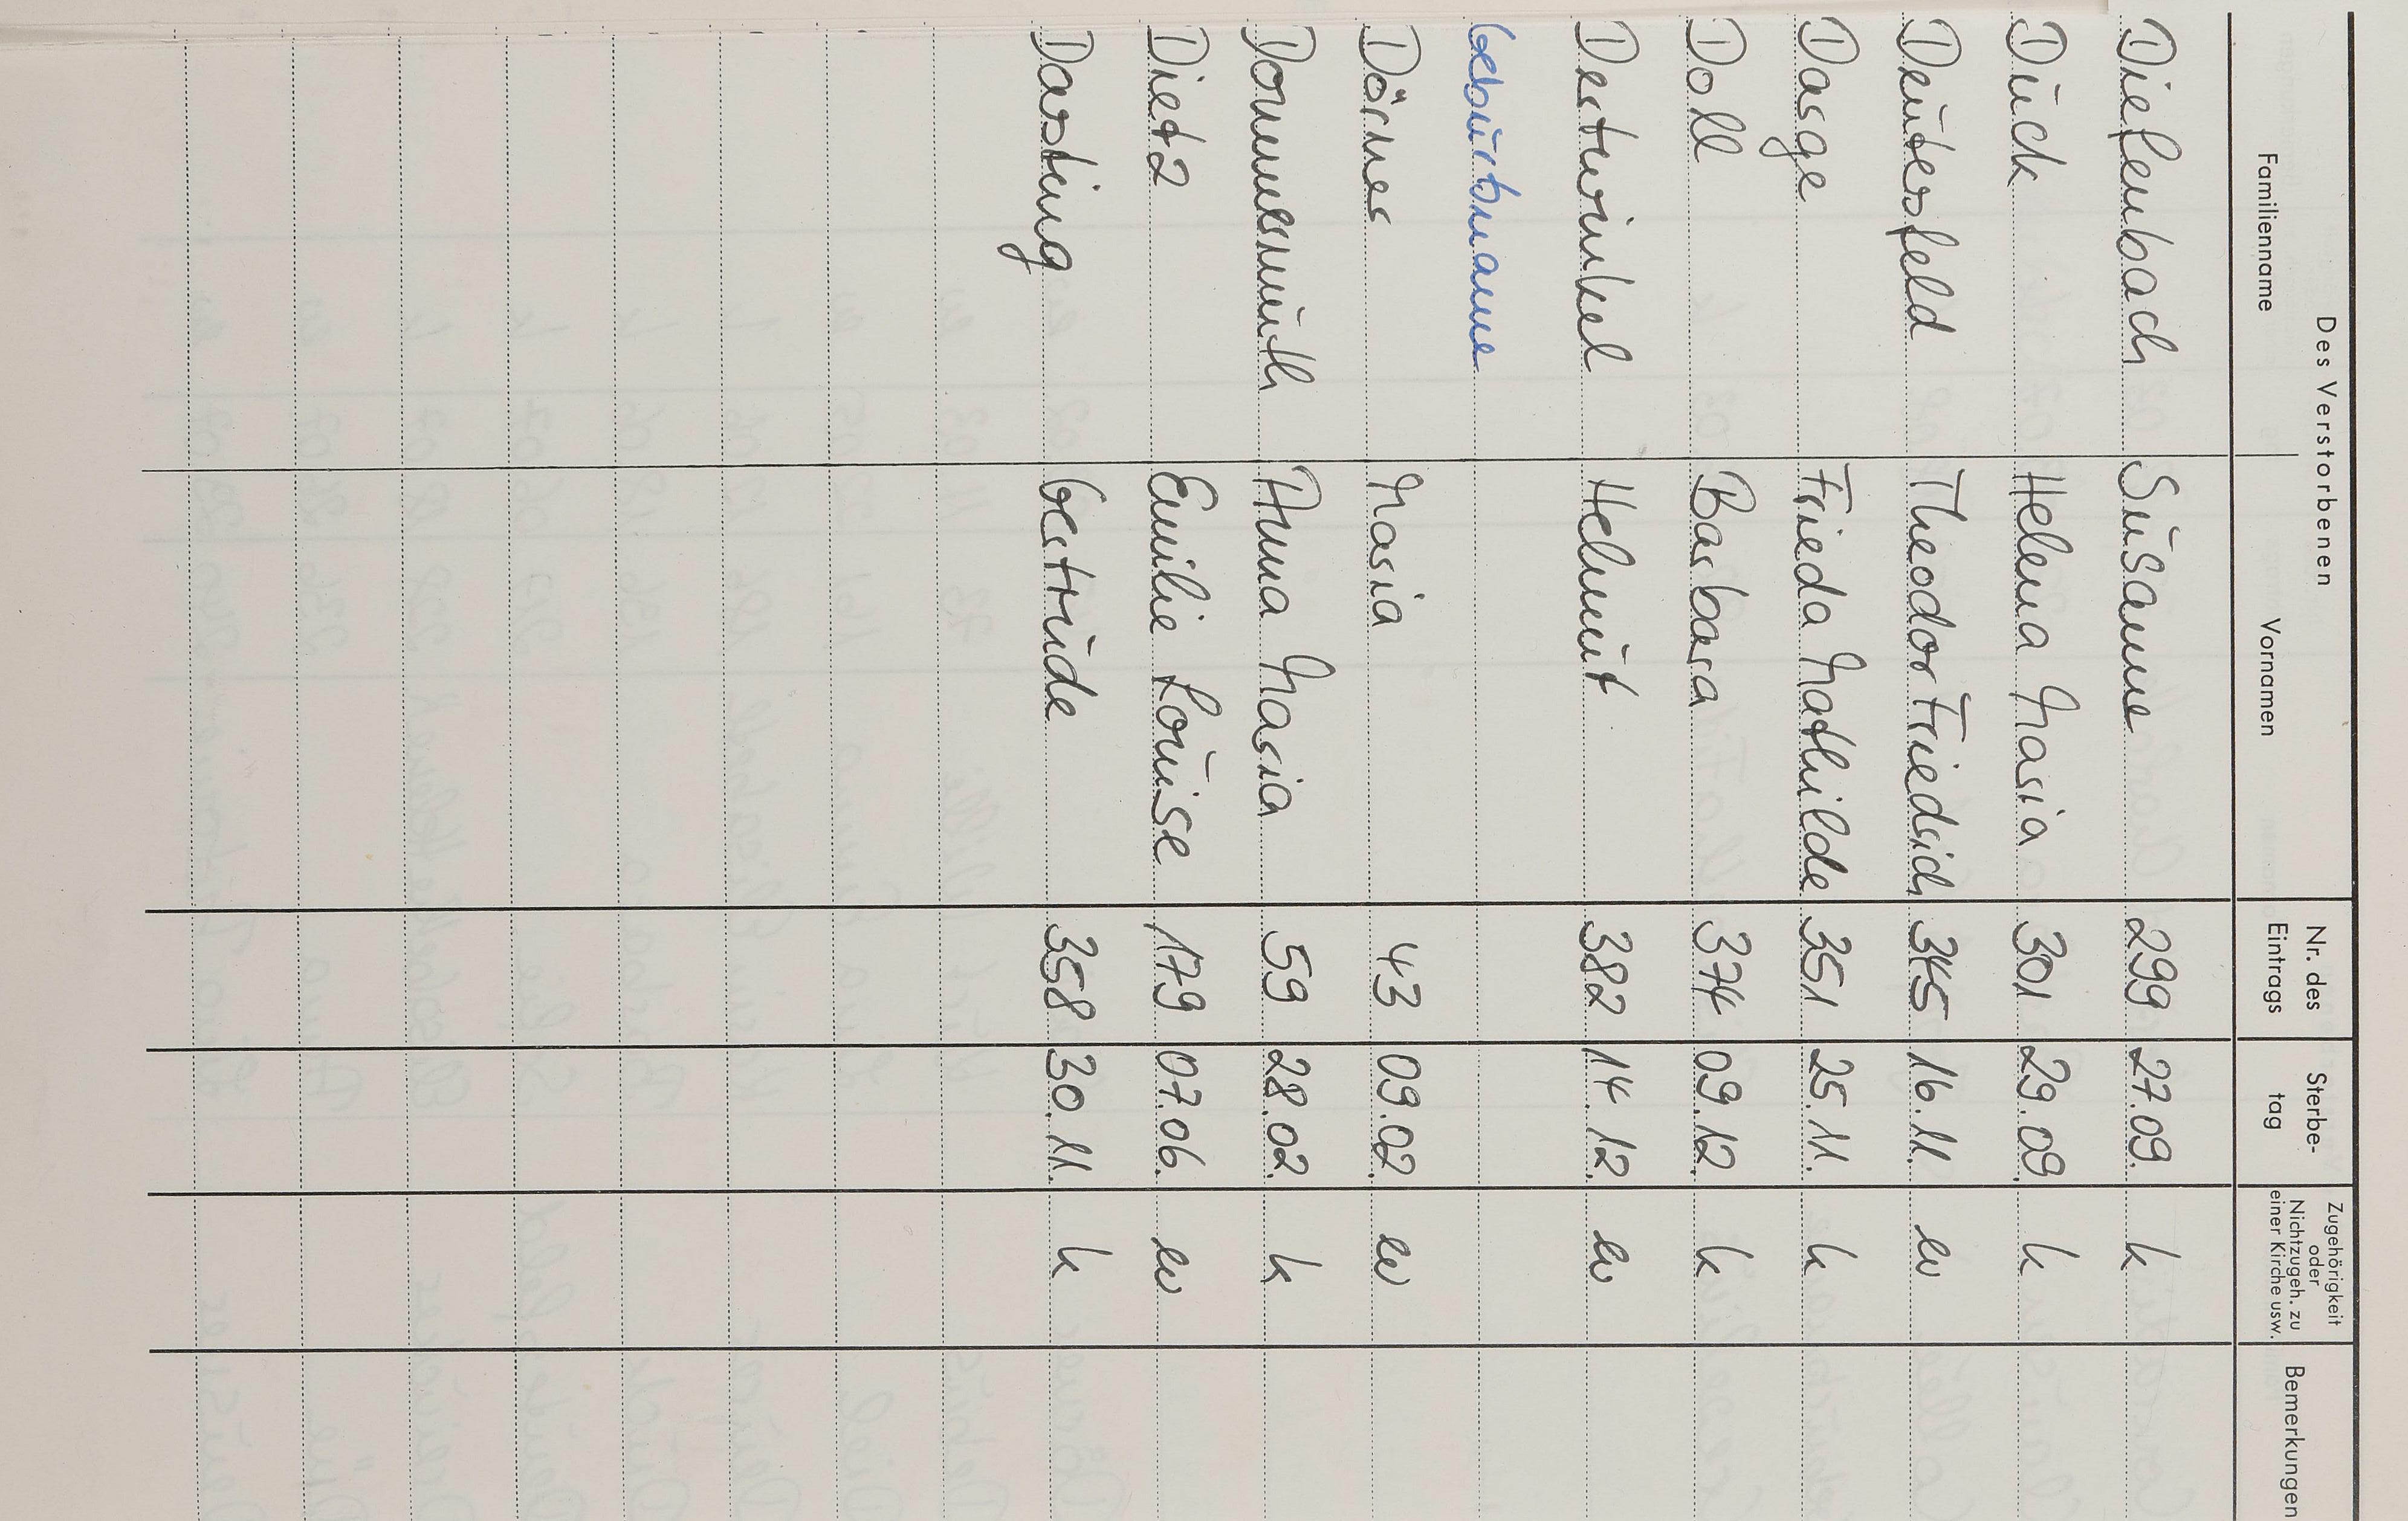 Des Verstorbenen
Familienname Vornamen Nr. des Eintrags Sterbe-tag Zugehörigkeit oder Nichtzugeh. zu einer Kirche usw. Bemerkungen
Diefenbach Susanne 299 27.09. k
Duck Helena Maria 301 29.09. k
Deutersfeld Theodor Friedrich 345 16.11. ev
Dasge Frieda Mathilde 351 25.11. k
Doll Barbara 374 09.12. k
Dertwinkel Helmut 382 14.12. ev
Geburtsname
Dörner Maria 43 09.02. ev
Dommermuth Anna Maria 59 28.02. k
Dietz Emilie Louise 179 07.06. ev
Darsting Gertrude 358 30.11. k